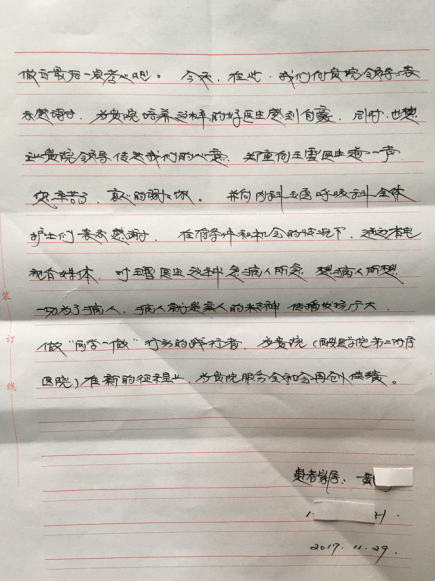 做可最后一点孝心吧。 今天, 在此, 我们向贵院领导表
示感谢, 为贵院培养这样的好医生感到自豪, 同时, 也想
让贵院领导传达我们的心意, 郑重向王雪医生道一声
您辛苦了, 真心的谢谢你。 并向内科医呼吸科全体
护士们表示感谢, 在有条件和机会的情况下, 通过本电
视台媒体, 对王雪医生这种急病人所急, 想病人所想
一切为了病人, 病人就是亲人的精神 传播发扬广大,
做“两学一做”行动的践行者, 为贵院 (医学院第二附属
医院) 在新的征程上, 为贵院服务全和会再创佳绩。
患者家属: 黄
2017. 11. 29.
装
订
线